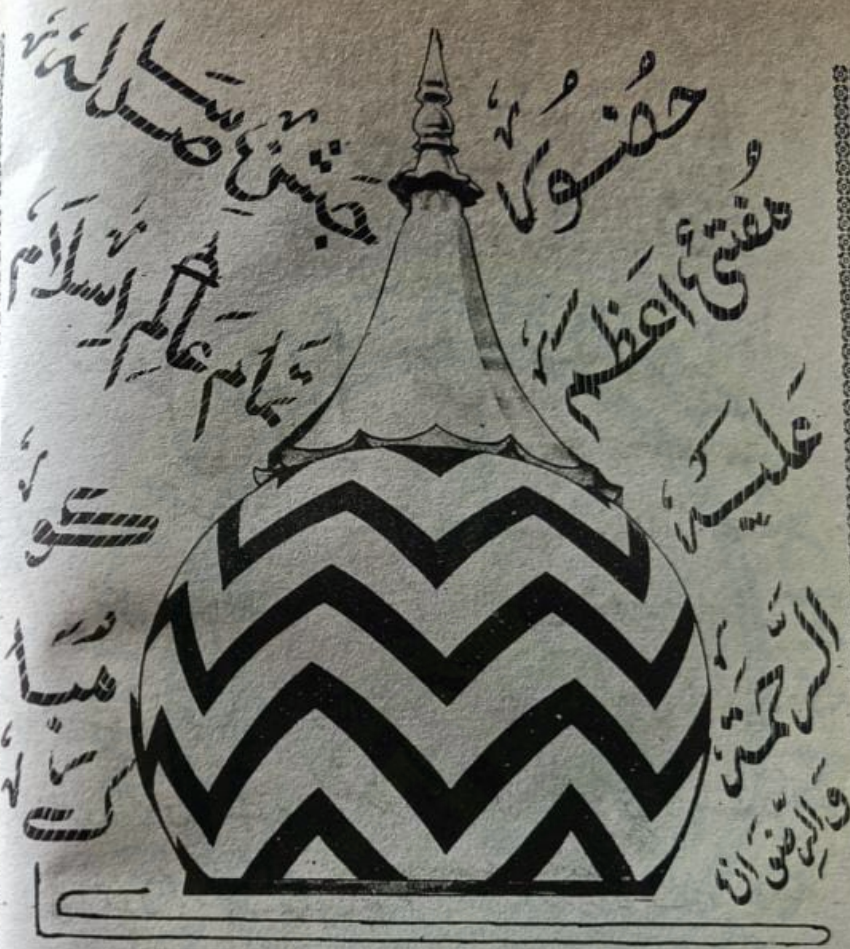 حُضُور
مُفتیٔ اَعظَم
عَلَیہ
الرَّحمَۃ
وَالرِّضوَان
جَشنِ صَد سَالہ
تمام عَالمِ اِسلَام
کو
مُبَارک